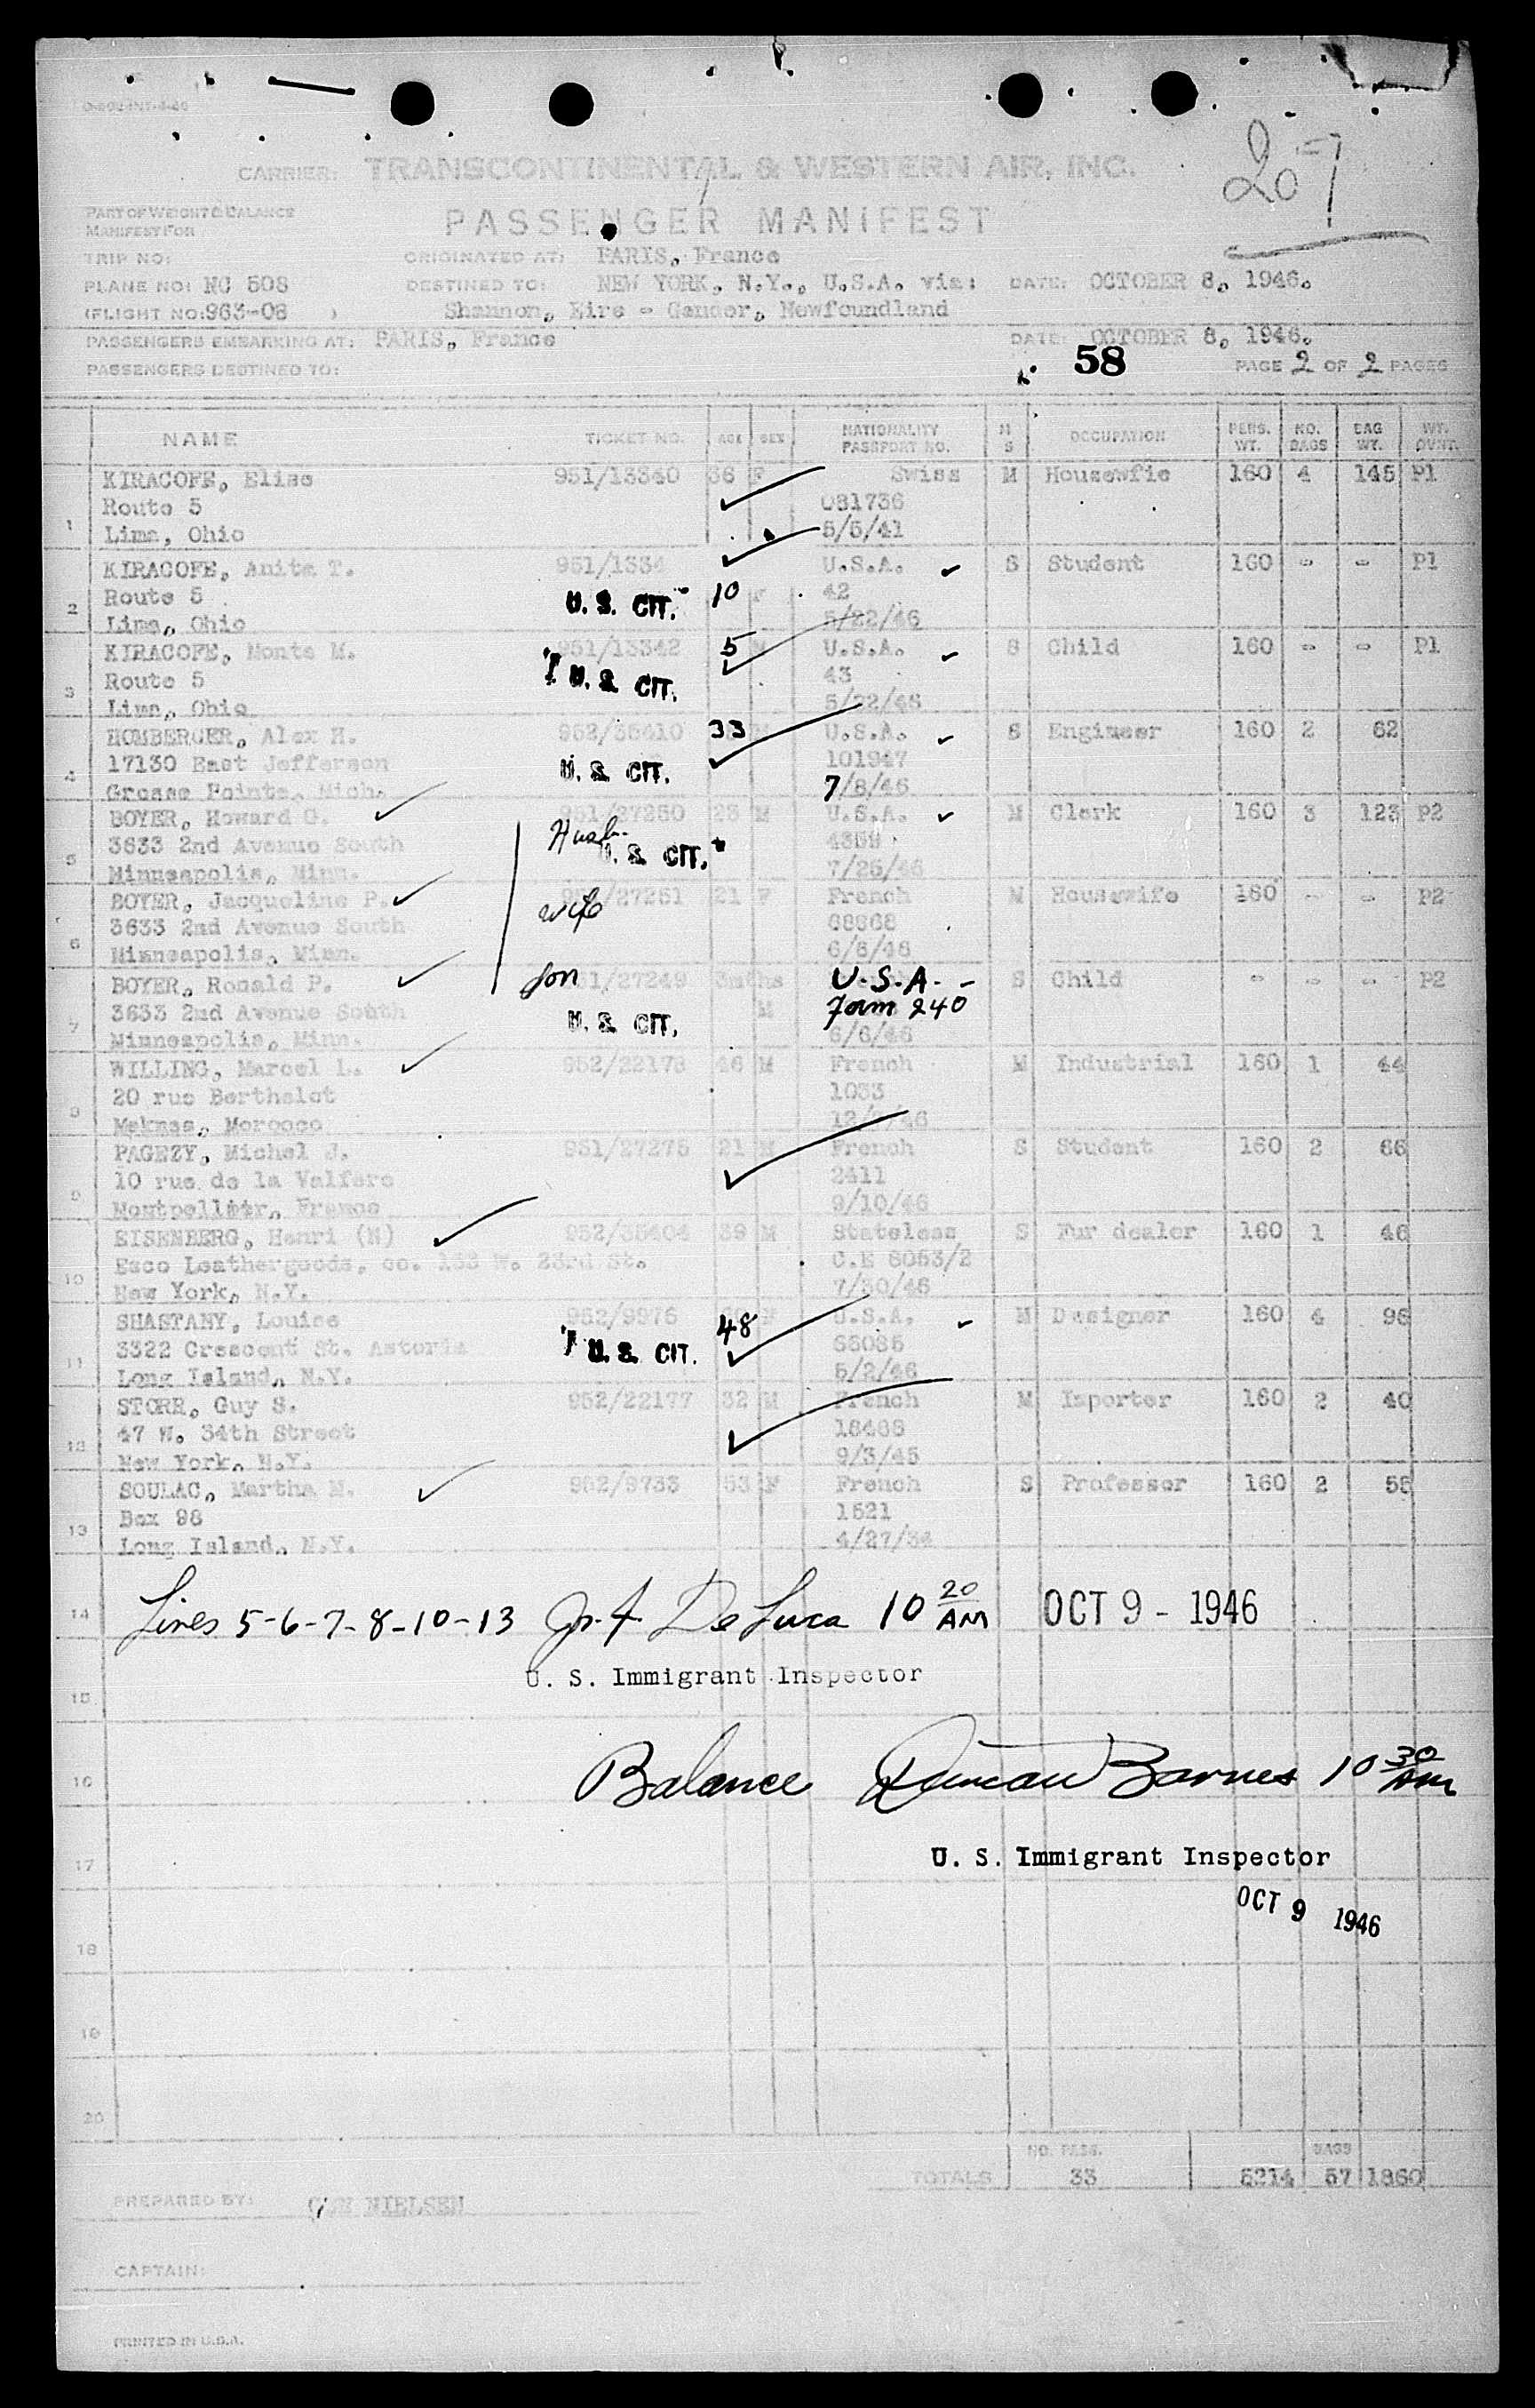 CARRIER: TRANSCONTINENTAL & WESTERN AIR, INC.
207
PART OF WEIGHT & BALANCE
MANIFEST FOR
PASSENGER MANIFEST
TRIP NO: ORIGINATED AT: PARIS, France
PLANE NO: NC 508 DESTINED TO: NEW YORK, N.Y., U.S.A. via: DATE: OCTOBER 8, 1946.
(FLIGHT NO: 963-08 ) Shannon, Eire - Gander, Newfoundland
PASSENGERS EMBARKING AT: PARIS, France DATE: OCTOBER 8, 1946.
PASSENGERS DESTINED TO: 58 PAGE 2 OF 2 PAGES
NAME TICKET NO. AGE SEX NATIONALITY PASSPORT NO. M S OCCUPATION PERS. WT. NO. BAGS BAG WT. WT. OVNT.
KIRACOFE, Elise 951/13340 36 F Swiss M Housewfie 160 4 145 P1
Route 5 081736
1 Lima, Ohio 5/5/41
KIRACOFE, Anita T. 951/1334 U.S.A. S Student 160 - - P1
Route 5 U. S. CIT. 10 F 42
2 Lima, Ohio 5/22/46
KIRACOFE, Monte M. 951/13342 5 M U.S.A. S Child 160 - - P1
Route 5 U. S. CIT. 43
3 Lima, Ohio 5/22/46
HOMBERGER, Alex H. 952/35410 33 M U.S.A. S Engineer 160 2 62
17130 East Jefferson U. S. CIT. 101947
4 Grosse Pointe, Mich. 7/8/46
BOYER, Howard G. 951/27250 23 M U.S.A. M Clerk 160 3 123 P2
3633 2nd Avenue South Husb. U. S. CIT. 4359
5 Minneapolis, Minn. 7/26/46
BOYER, Jacqueline P. 951/27251 21 F French M Housewife 160 - - P2
3633 2nd Avenue South wife 68868
6 Minneapolis, Minn. 6/6/46
BOYER, Ronald P. son 951/27249 3mths U.S.A. - S Child - - - P2
3633 2nd Avenue South U. S. CIT. M Form 240
7 Minneapolis, Minn. 6/6/46
WILLING, Marcel L. 952/22178 46 M French M Industrial 160 1 44
20 rue Berthelot 1033
8 Meknes, Morocco
PAGEZY, Michel J. 951/27275 21 M French S Student 160 2 66
10 rue de la Valfere 2411
9 Montpellier, France 9/10/46
EISENBERG, Henri (N) 952/35404 39 M Stateless S Fur dealer 160 1 46
Esco Leathergoods, co. 153 W. 23rd St. C.E 8053/2
10 New York, N.Y. 7/30/46
SHASTANY, Louise 952/9976 48 F U.S.A. M Designer 160 4 98
3322 Crescent St. Astoria U. S. CIT. 55085
11 Long Island, N.Y. 5/2/46
STORR, Guy S. 952/22177 32 M French M Importer 160 2 40
47 W. 34th Street 18488
12 New York, N.Y. 9/3/45
SOULAC, Martha M. 952/9733 53 F French S Professor 160 2 55
Box 98 1521
13 Long Island, N.Y. 4/27/34
14 Lines 5-6-7-8-10-13 Jo. F. De Luca 10 20 AM OCT 9 - 1946
U. S. Immigrant Inspector
15
16 Balance Duncan Barnes 10 30 AM
17 U. S. Immigrant Inspector
OCT 9 1946
18
19
20
NO. PASS. BAGS
TOTALS 33 5214 57 1860
PREPARED BY: NIELSEN
CAPTAIN:
PRINTED IN U.S.A.